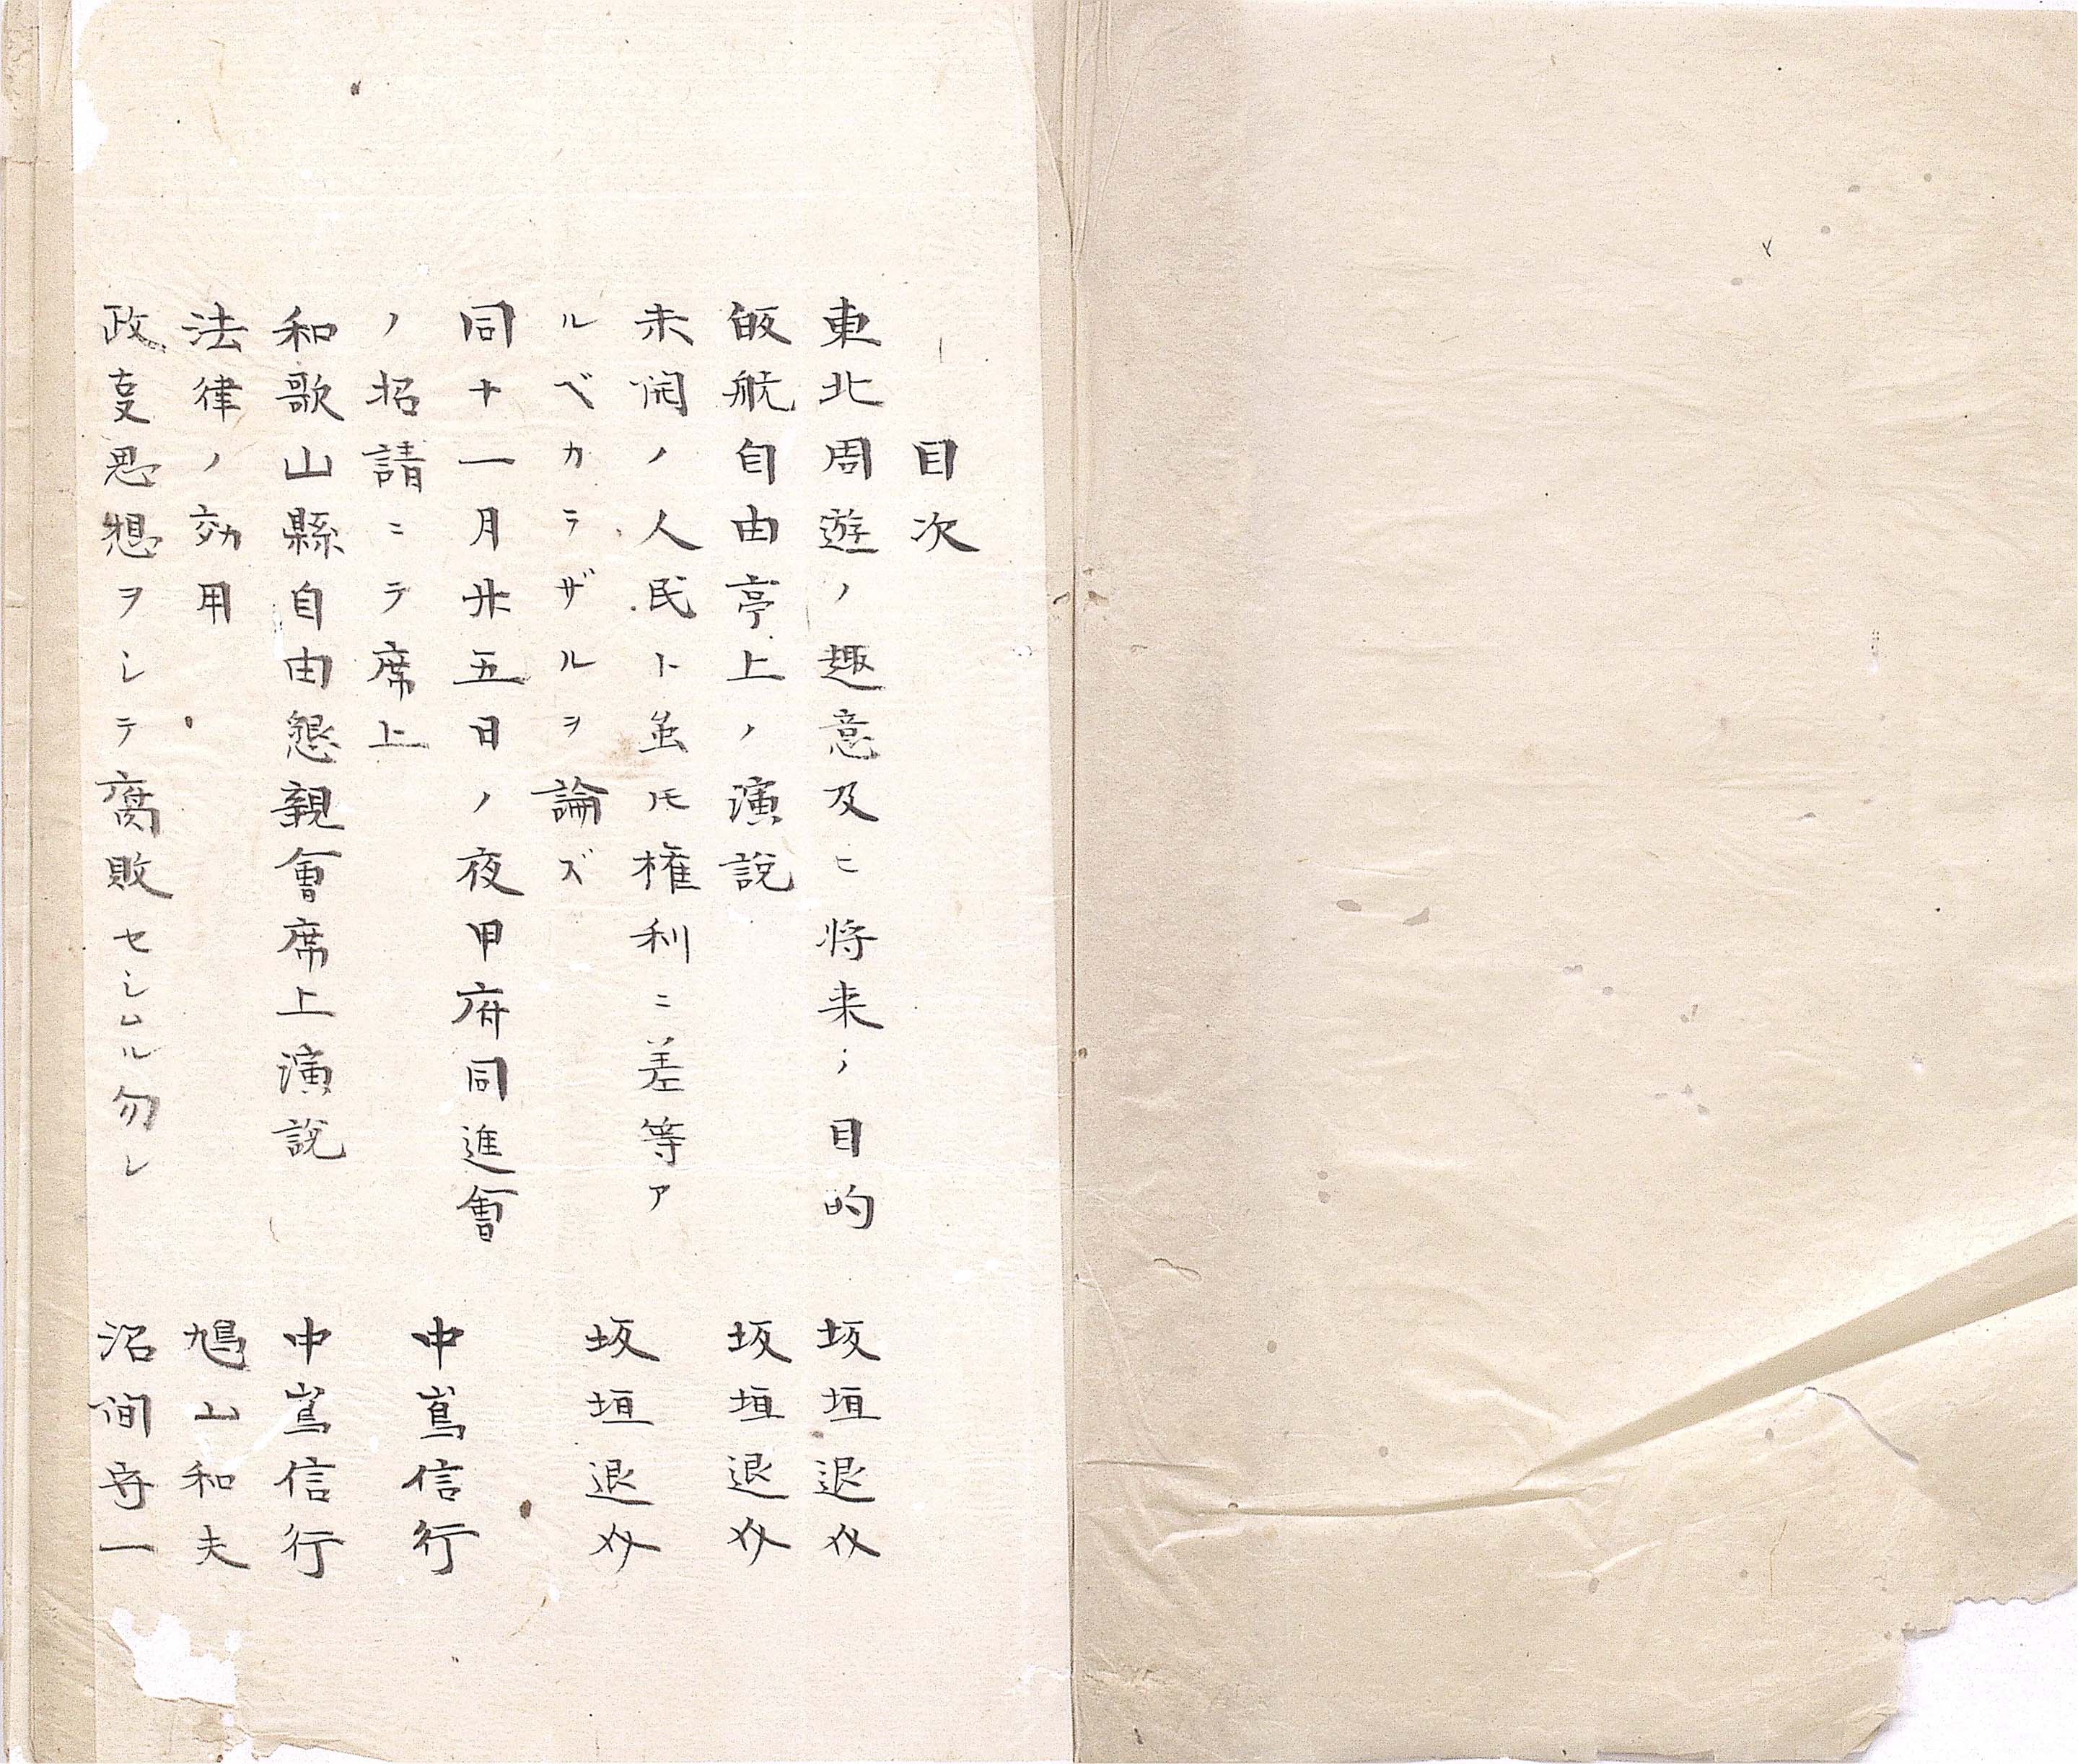 目次
東北周遊ノ趣意及ヒ将来ノ目的 坂垣退助
皈航自由亭上ノ演説 坂垣退助
未開ノ人民ト虽𪜈権利ニ差等ア
ルベカラザルヲ論ズ 坂垣退助
同十一月廾五日ノ夜甲府同進會
ノ招請ニテ席上 中嶌信行
和歌山縣自由懇親會席上演説 中嶌信行
法律ノ効用 鳩山和夫
政叓思想ヲシテ腐敗セシムル勿レ 沼間守一